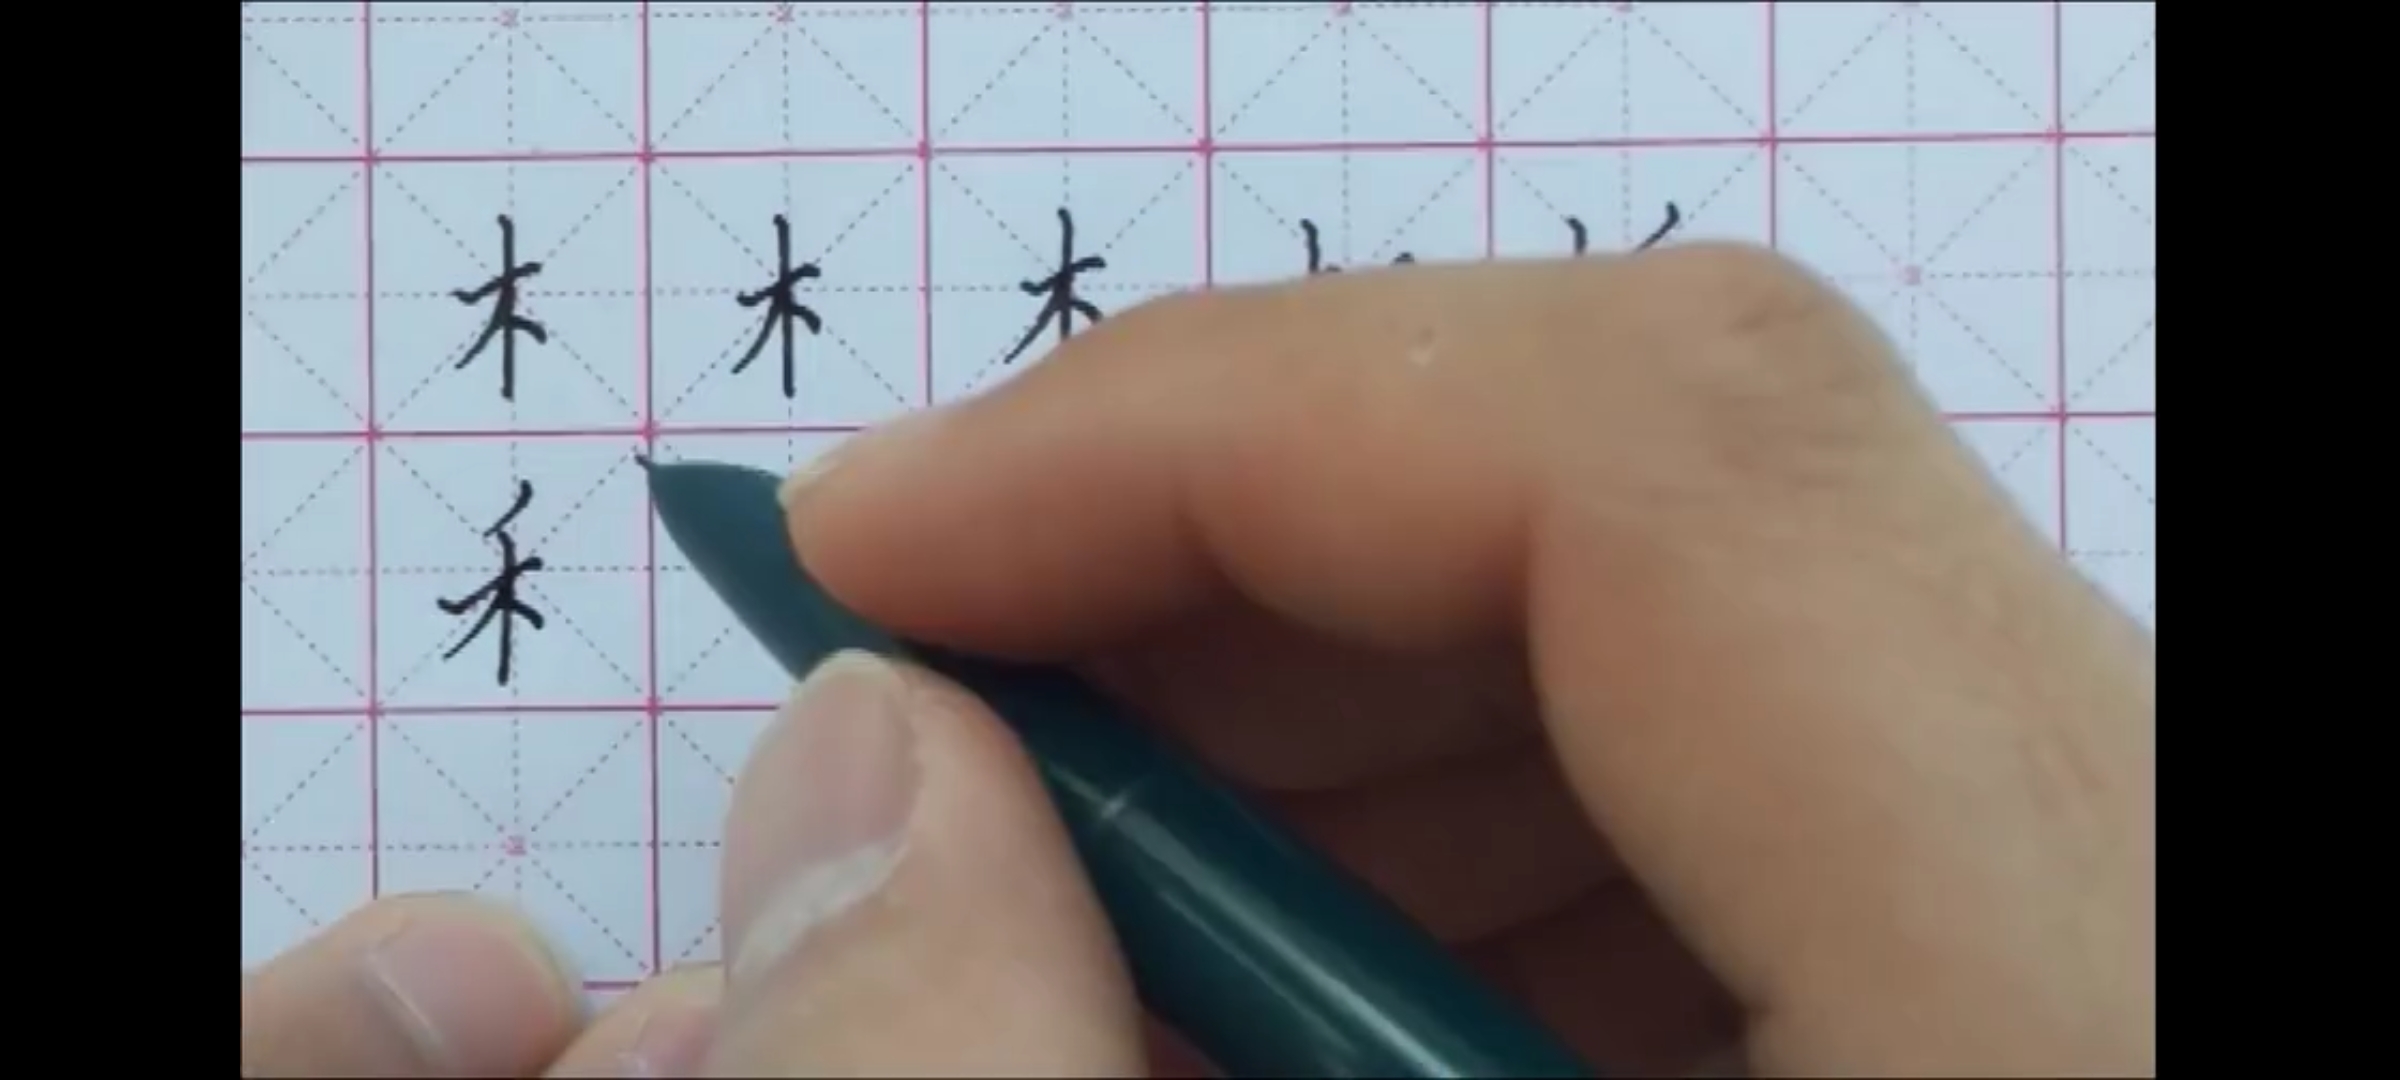 木 木 木
禾